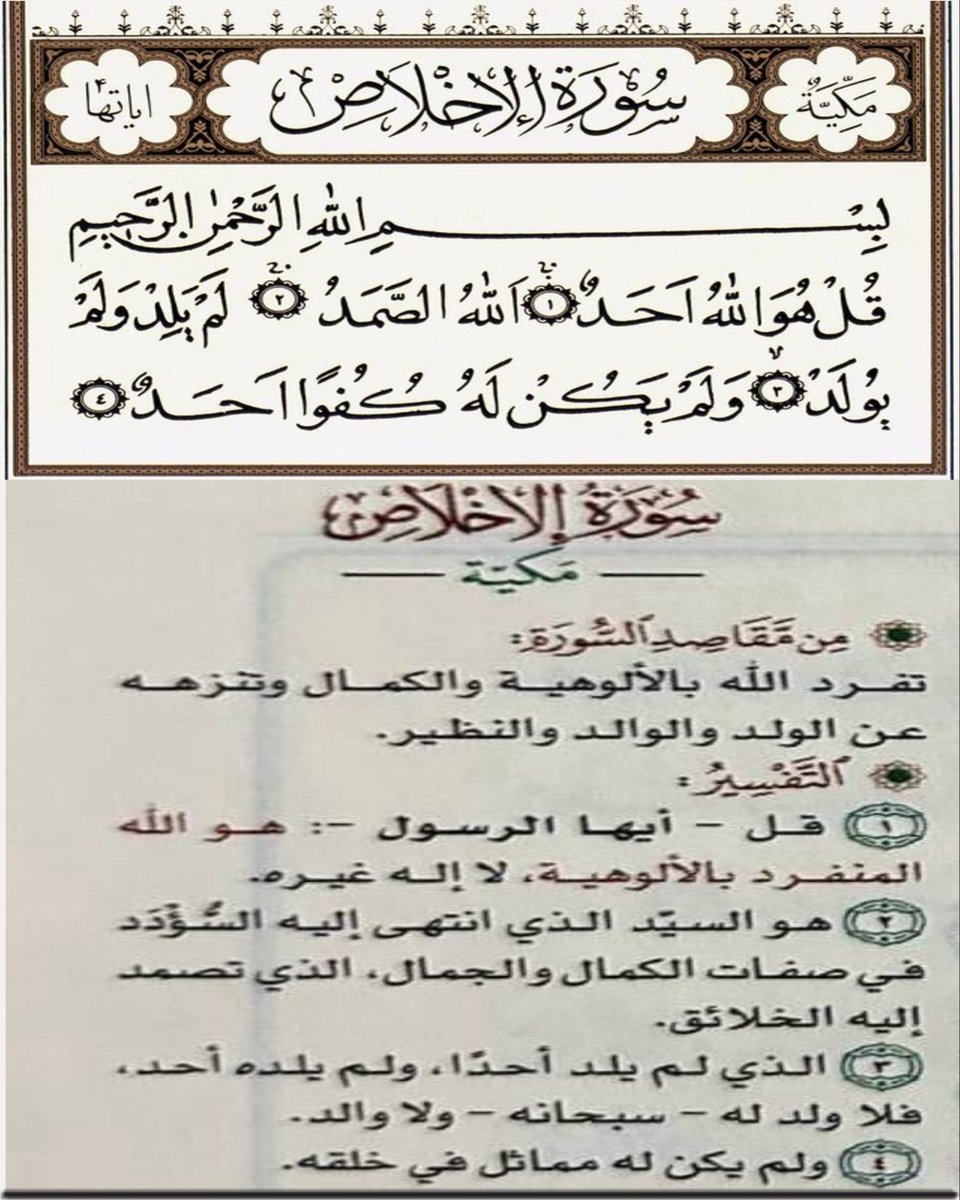 مَكِّيَّةٌ سُورَةُ الإِخْلَاصِ اياتها ٤
بِسْمِ اللهِ الرَّحْمٰنِ الرَّحِيمِ
قُلْ هُوَ اللهُ اَحَدٌ ١ اَللهُ الصَّمَدُ ٢ لَمْ يَلِدْ وَلَمْ
يُولَدْ ٣ وَلَمْ يَكُنْ لَهُ كُفُوًا اَحَدٌ ٤
سُورَةُ الإِخْلَاصِ
مَكيّة
مِن مَّقَاصِدِ السُّورَةِ:
تفرد الله بالألوهية والكمال وتنزهه
عن الولد والوالد والنظير.
التَّفْسِيرُ:
١ قل - أيها الرسول -: هو الله
المنفرد بالألوهية، لا إله غيره.
٢ هو السيّد الذي انتهى إليه السُّؤْدَد
في صفات الكمال والجمال، الذي تصمد
إليه الخلائق.
٣ الذي لم يلد أحدًا، ولم يلده أحد،
فلا ولد له - سبحانه - ولا والد.
٤ ولم يكن له مماثل في خلقه.